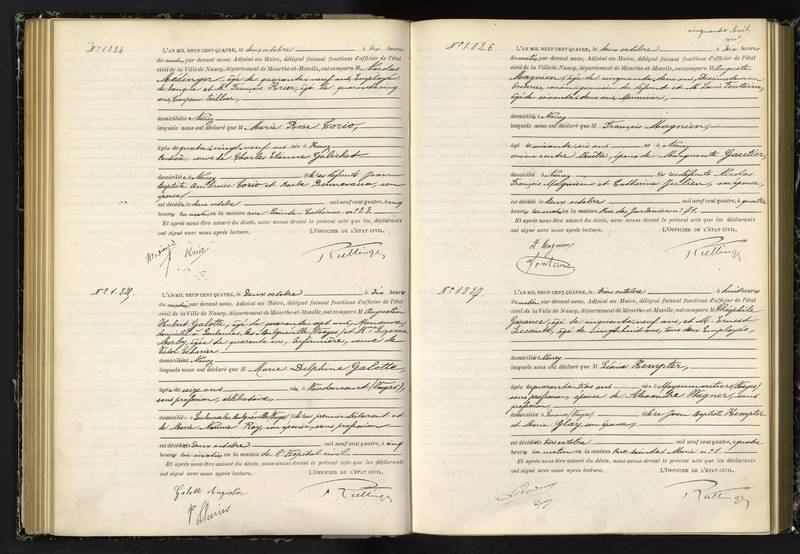 Nº 1824
L'AN MIL NEUF CENT QUATRE, le deux octobre à dix heures
du matin, par devant nous, Adjoint au Maire, délégué faisant fonctions d'officier de l'état
civil de la Ville de Nancy, département de Meurthe-et-Moselle, ont comparu M. Nicolas
âgé de quarante neuf ans, Employé
de banque et M. François Krier, âgé de quarante cinq
ans, Coupeur tailleur,
domiciliés à Nancy
lesquels nous ont déclaré que M Marie Rose Corio,
âgée de quatre vingt neuf ans née à Nancy
veuve de Charles Etienne Galichet
domiciliée à Nancy fille des défunts Jean
Baptiste Corio et son
épouse
est décédée deux octobre mil neuf cent quatre, à cinq
heures du matin en la maison rue Sainte Catherine nº
Et après nous être assuré du décès, nous avons dressé le présent acte que les déclarants
ont signé avec nous après lecture. L'OFFICIER DE L'ÉTAT CIVIL,
Krier
Nº 1825
L'AN MIL NEUF CENT QUATRE, le Deux octobre à dix heures
du matin, par devant nous, Adjoint au Maire, délégué faisant fonctions d'officier de l'état
civil de la Ville de Nancy, département de Meurthe-et-Moselle, ont comparu M. Augustin
Hubert Galotte, âgé de quarante sept ans, Manœuvre,
domicilié à (Vosges) et Mme
âgée de quarante ans, Infirmière, veuve de
domiciliée à Nancy
lesquels nous ont déclaré que M Marie Delphine Galotte,
âgée de seize ans née à Vaudoncourt (Vosges),
sans profession, célibataire
domiciliée à fille du premier déclarant et
de Marie Roy, son épouse, sans profession
est décédée deux octobre mil neuf cent quatre, à cinq
heures du matin en la maison de l'Hôpital civil
Et après nous être assuré du décès, nous avons dressé le présent acte que les déclarants
ont signé avec nous après lecture. L'OFFICIER DE L'ÉTAT CIVIL,
Galotte Augustin
cinquante huit,
Nº 1826
L'AN MIL NEUF CENT QUATRE, le deux octobre à dix heures
du matin, par devant nous, Adjoint au Maire, délégué faisant fonctions d'officier de l'état
civil de la Ville de Nancy, département de Meurthe-et-Moselle, ont comparu M. Auguste
Magnien, âgé de cinquante deux ans,
cousin germain du défunt et M. Louis Fontaine,
âgé de soixante deux ans, Menuisier,
domiciliés à Nancy
lesquels nous ont déclaré que M François Magnien,
âgé de soixante six ans né à Nancy
ancien époux de Marguerite Gautier,
domicilié à Nancy fils des défunts Nicolas
François Magnien et Catherine Julien, son épouse,
est décédé le deux octobre mil neuf cent quatre, à quatre
heures du matin en la maison Rue des Jardiniers nº
Et après nous être assuré du décès, nous avons dressé le présent acte que les déclarants
ont signé avec nous après lecture. L'OFFICIER DE L'ÉTAT CIVIL,
A Magnien
Fontaine
Nº 1827.
L'AN MIL NEUF CENT QUATRE, le trois octobre à huit heures
du matin, par devant nous, Adjoint au Maire, délégué faisant fonctions d'officier de l'état
civil de la Ville de Nancy, département de Meurthe-et-Moselle, ont comparu M. Théophile
Garance, âgé de cinquante neuf ans, et M. Ernest
Lecomte, âgé de vingt huit ans, tous deux Employés,
domiciliés à Nancy
lesquels nous ont déclaré que M Léonie Kempter,
âgée de quarante trois ans née à Moyenmoutier (Vosges)
sans profession, épouse de Alexandre Wagner, sans
profession
domiciliée à (Vosges) fille de Jean Baptiste Kempter
et Marie Glay, son épouse,
est décédée trois octobre mil neuf cent quatre, à quatre
heures du matin en la maison Rue
Et après nous être assuré du décès, nous avons dressé le présent acte que les déclarants
ont signé avec nous après lecture. L'OFFICIER DE L'ÉTAT CIVIL,